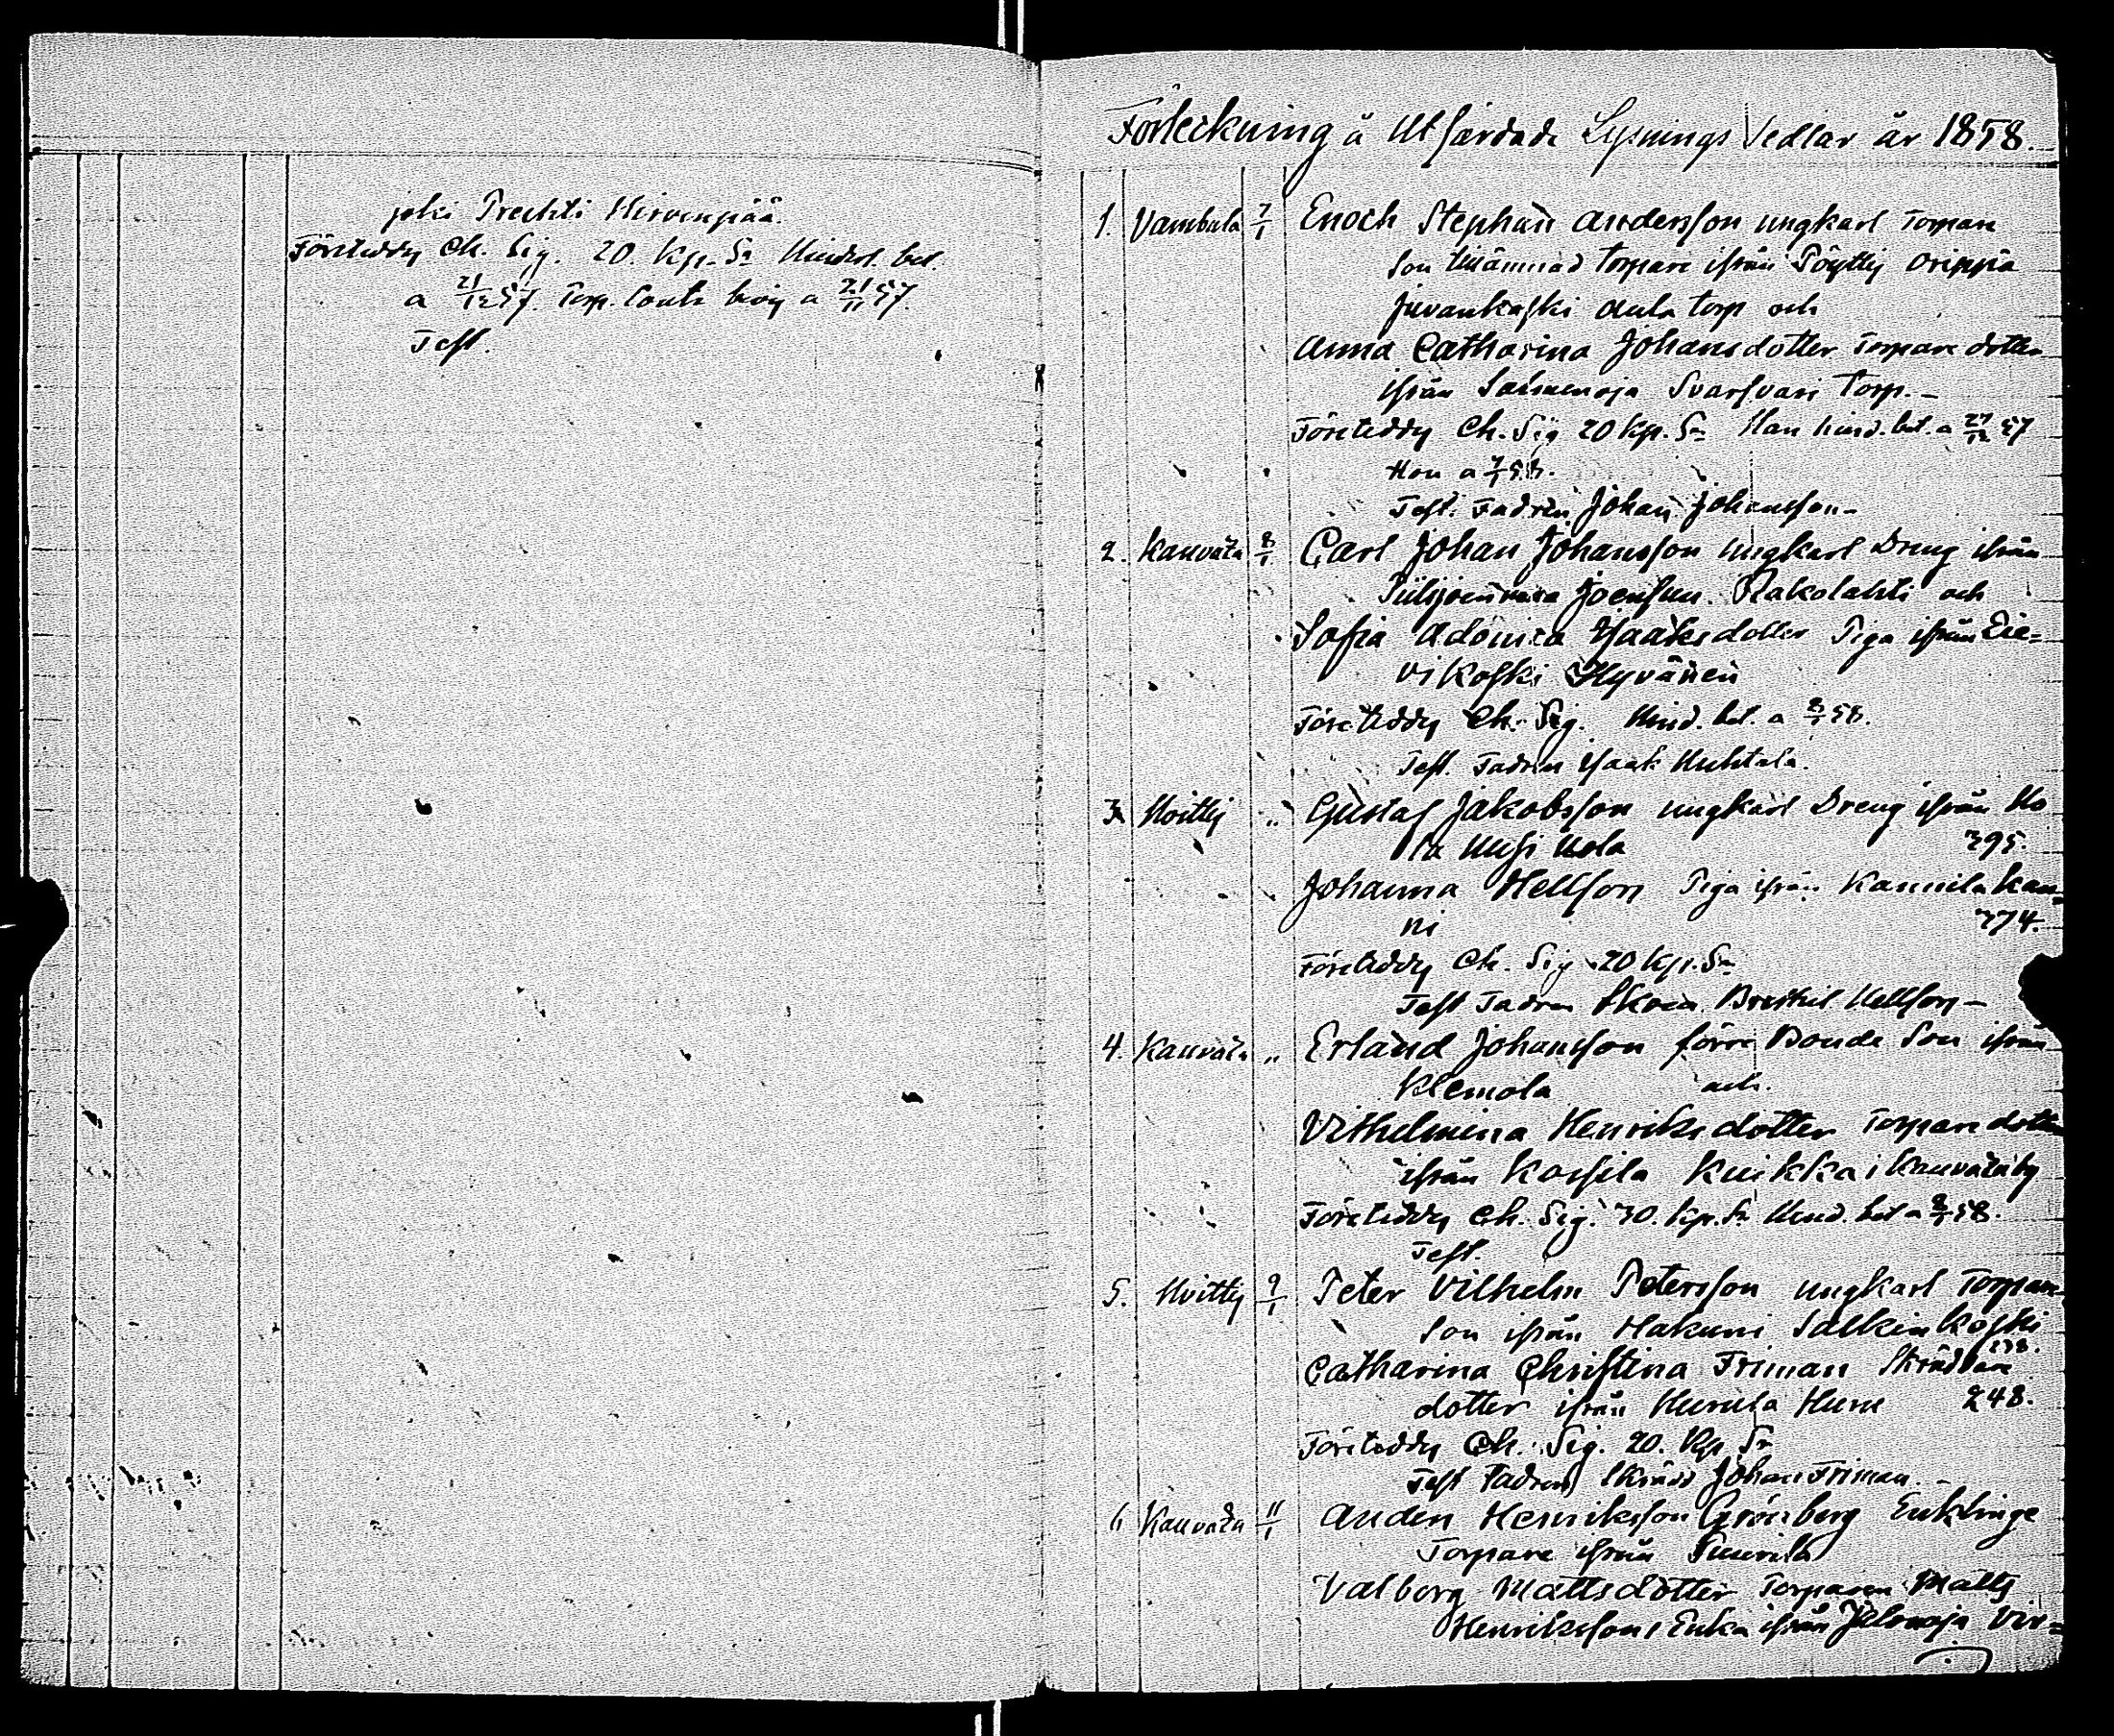 joki Prechti Hirvenpää.
Företeddy Ch. Sig. 20. Kp. Sr Hinderl. bet.
a 21/12 57. Torp. Contr. a 21/11 57.
Test.
Förteckning å Utfärdade Lysnings Sedlar år 1858.
1. Vambula 7/1 Enoch Stephan Andersson ungkarl Torpare
son tillämnad Torpare ifrån Pöytty Orippä
Juvankoski Aula torp och
Anna Catharina Johansdotter Torpare dotter
ifrån Sarsvari Torp.-
Företeddy Ch. Sig 20 Kp. Sr Han hind. bet. a 27/12 57
Hon a 7/1 58.
Test. Fadren Johan Johansson-
2. Kauvata 8/1 Carl Johan Johansson ungkarl Dreng ifrån
Joensuu. Rakolahti och
Sofia Adönira Isaaksdotter Piga ifrån
vikoski Hyvänen
Företeddy Ch. Sig. Hind. bet. a 8/1 58.
Test. Fadren Isaak Huhtala.
3. Hvittis " Gustaf Jakobsson ungkarl Dreng ifrån Ho
la Uusi Hola 395.
Johanna Hellson Piga ifrån Kannila Kan-
ni 374.
Företeddy Ch. Sig 20 Kp. Sr
Test Fadren Skom. Hellson-
4. Kauvata " Erland Johansson förre Bonde Son ifrån
Klemola och.
Vilhelmina Henriksdotter Torpare dotter
ifrån Kossila Kuikka i Kauvata by
Företeddy Ch. Sig. 30. Kp. Sr Hind. bet a 8/1 58.
Test.
5. Hvittis 9/1 Peter Vilhelm Petersson ungkarl Torpare
Son ifrån Hakuni Sallkin Koski
238.
Catharina Christina Friman Skräddare
dotter ifrån Hurula Huru 248.
Företeddy Ch. Sig. 20. Kp Sr
Test Fadren Skrädd Johan Friman.-
6 Kauvata 11/1 Anders Henriksson Grönberg Enklinge
Torpare ifrån
Valborg Mattsdotter Torparen Matts
Henrikssons Enka ifrån Vir-